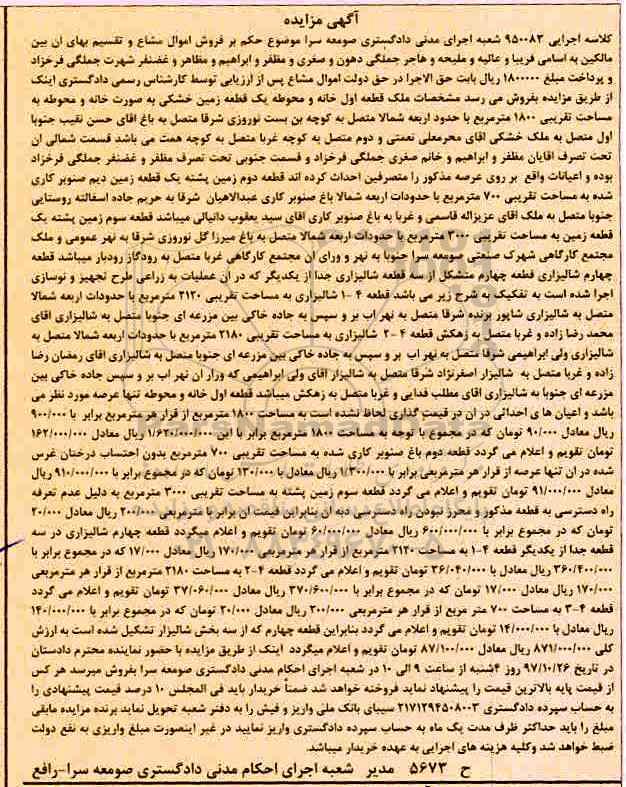 آگهی مزایده
کلاسه اجرایی ۹۵۰۰۸۳ شعبه اجرای مدنی دادگستری صومعه سرا موضوع حکم بر فروش اموال مشاع و تقسیم بهای ان بین
مالکین به اسامی فریبا و عالیه و ملیحه و هاجر جملگی دهون و صغری و مظفر و ابراهیم و مظاهر و غضنفر شهرت جملگی فرخزاد
و پرداخت مبلغ ۱۸۰۰۰۰۰ ریال بابت حق الاجرا در حق دولت اموال مشاع پس از ارزیابی توسط کارشناس رسمی دادگستری اینک
از طریق مزایده بفروش می رسد مشخصات ملک قطعه اول خانه و محوطه یک قطعه زمین خشکی به صورت خانه و محوطه به
مساحت تقریبی ۱۸۰۰ مترمربع با حدود اربعه شمالا متصل به کوچه بن بست نوروزی شرقا متصل به باغ اقای حسن نقیب جنوبا
اول متصل به ملک خشکی اقای محرمعلی نعمتی و دوم متصل به کوچه غربا متصل به کوچه همت می باشد قسمت شمالی ان
تحت تصرف اقایان مظفر و ابراهیم و خانم صغری جملگی فرخزاد و قسمت جنوبی تحت تصرف مظفر و غضنفر جملگی فرخزاد
بوده و اعیانات واقع بر روی عرصه مذکور را متصرفین احداث کرده اند قطعه دوم زمین پشته یک قطعه زمین دیم صنوبر کاری
شده به مساحت تقریبی ۷۰۰ مترمربع با حدودات اربعه شمالا باغ صنوبر کاری عبدالاهیان شرقا به حریم جاده اسفالته روستایی
جنوبا متصل به ملک اقای عزیزاله قاسمی و غربا به باغ صنوبر کاری اقای سید یعقوب دانیالی میباشد قطعه سوم زمین پشته یک
قطعه زمین به مساحت تقریبی ۳۰۰۰ مترمربع با حدودات اربعه شمالا متصل به باغ میرزا گل نوروزی شرقا به نهر عمومی و ملک
مجتمع کارگاهی شهرک صنعتی صومعه سرا جنوبا به نهر و ورای ان مجتمع کارگاهی غربا متصل به رودگاز رودبار میباشد قطعه
چهارم شالیزاری قطعه چهارم متشکل از سه قطعه شالیزاری جدا از یکدیگر که در ان عملیات به زراعی طرح تجهیز و نوسازی
اجرا شده است به تفکیک به شرح زیر می باشد قطعه ۴-۱ شالیزاری به مساحت تقریبی ۲۱۲۰ مترمربع با حدودات اربعه شمالا
متصل به شالیزاری شاپور برنده شرقا متصل به نهر اب بر و سپس به جاده خاکی بین مزرعه ای جنوبا متصل به شالیزاری اقای
محمد رضا زاده و غربا متصل به زهکش قطعه ۴-۲ شالیزاری به مساحت تقریبی ۲۱۸۰ مترمربع با حدودات اربعه شمالا متصل به
شالیزاری ولی ابراهیمی شرقا متصل به نهر اب بر و سپس به جاده خاکی بین مزرعه ای جنوبا متصل به شالیزاری اقای رمضان رضا
زاده و غربا متصل به شالیزار اصغرنژاد شرقا متصل به شالیزار اقای ولی ابراهیمی که ورار ان نهر اب بر و سپس جاده خاکی بین
مزرعه ای جنوبا به شالیزاری اقای مطلب فدایی و غربا متصل به زهکش میباشد قطعه اول خانه و محوطه تنها عرصه مورد نظر می
باشد و اعیان ها ی احداثی در ان در قیمت گذاری لحاظ نشده است به مساحت ۱۸۰۰ مترمربع از قرار هر مترمربع برابر با ۹۰۰/۰۰۰
ریال معادل ۹۰/۰۰۰ تومان که در مجموع با توجه به مساحت ۱۸۰۰ مترمربع برابر با این ۱/۶۲۰/۰۰۰/۰۰۰ ریال معادل ۱۶۲/۰۰۰/۰۰۰
تومان تقویم و اعلام می گردد قطعه دوم باغ صنوبر کاری شده به مساحت تقریبی ۷۰۰ مترمربع بدون احتساب درختان غرس
شده در ان تنها عرصه از قرار هر مترمربعی برابر با ۱/۳۰۰/۰۰۰ ریال معادل با ۱۳۰/۰۰۰ تومان که در مجموع برابر با ۹۱۰/۰۰۰/۰۰۰ ریال
معادل ۹۱/۰۰۰/۰۰۰ تومان تقویم و اعلام می گردد قطعه سوم زمین پشته به مساحت تقریبی ۳۰۰۰ مترمربع به دلیل عدم تعرفه
راه دسترسی به قطعه مذکور و محرز نبودن راه دسترسی دبه ان بنابراین قیمت ان برابر با مترمربعی ۲۰۰/۰۰۰ ریال معادل ۲۰/۰۰۰
تومان که در مجموع برابر با ۶۰۰/۰۰۰/۰۰۰ ریال معادل ۶۰/۰۰۰/۰۰۰ تومان تقویم و اعلام میگردد قطعه چهارم شالیزاری در سه
قطعه جدا از یکدیگر قطعه ۴-۱ به مساحت ۲۱۲۰ مترمربع از قرار هر مترمربعی ۱۷۰/۰۰۰ ریال معادل ۱۷/۰۰۰ که در مجموع برابر با
۳۶۰/۴۰۰/۰۰۰ ریال معادل با ۳۶/۰۴۰/۰۰۰ تومان تقویم و اعلام می گردد قطعه ۴-۲ به مساحت ۲۱۸۰ مترمربع از قرار هر مترمربعی
۱۷۰/۰۰۰ ریال معادل ۱۷/۰۰۰ تومان که در مجموع برابر با ۳۷۰/۶۰۰/۰۰۰ ریال معادل ۳۷/۰۶۰/۰۰۰ تومان تقویم و اعلام می گردد
قطعه ۴-۳ به مساحت ۷۰۰ متر مربع از قرار هر مترمربعی ۲۰۰/۰۰۰ ریال معادل ۲۰/۰۰۰ تومان که در مجموع برابر با ۱۴۰/۰۰۰/۰۰۰
ریال معادل با ۱۴/۰۰۰/۰۰۰ تومان تقویم و اعلام می گردد بنابراین قطعه چهارم که از سه بخش شالیزار تشکیل شده است به ارزش
کلی ۸۷۱/۰۰۰/۰۰۰ ریال معادل ۸۷/۱۰۰/۰۰۰ تومان تقویم و اعلام میگردد اینک از طریق مزایده با حضور نماینده محترم دادستان
در تاریخ ۹۷/۱۰/۲۶ روز ۴شنبه از ساعت ۹ الی ۱۰ در شعبه اجرای احکام مدنی دادگستری صومعه سرا بفروش میرسد هر کس
از قیمت پایه بالاترین قیمت را پیشنهاد نماید فروخته خواهد شد ضمناً خریدار باید فی المجلس ۱۰ درصد قیمت پیشنهادی را
به حساب سپرده دادگستری ۲۱۷۱۲۹۴۵۰۸۰۰۳ سیبای بانک ملی واریز و فیش را به دفتر شعبه تحویل نماید برنده مزایده مابقی
مبلغ را باید حداکثر ظرف مدت یک ماه به حساب سپرده دادگستری واریز نمایید در غیر اینصورت مبلغ واریزی به نفع دولت
ضبط خواهد شد وکلیه هزینه های اجرایی به عهده خریدار میباشد.
ح ۵۶۷۳ مدیر شعبه اجرای احکام مدنی دادگستری صومعه سرا-رافع